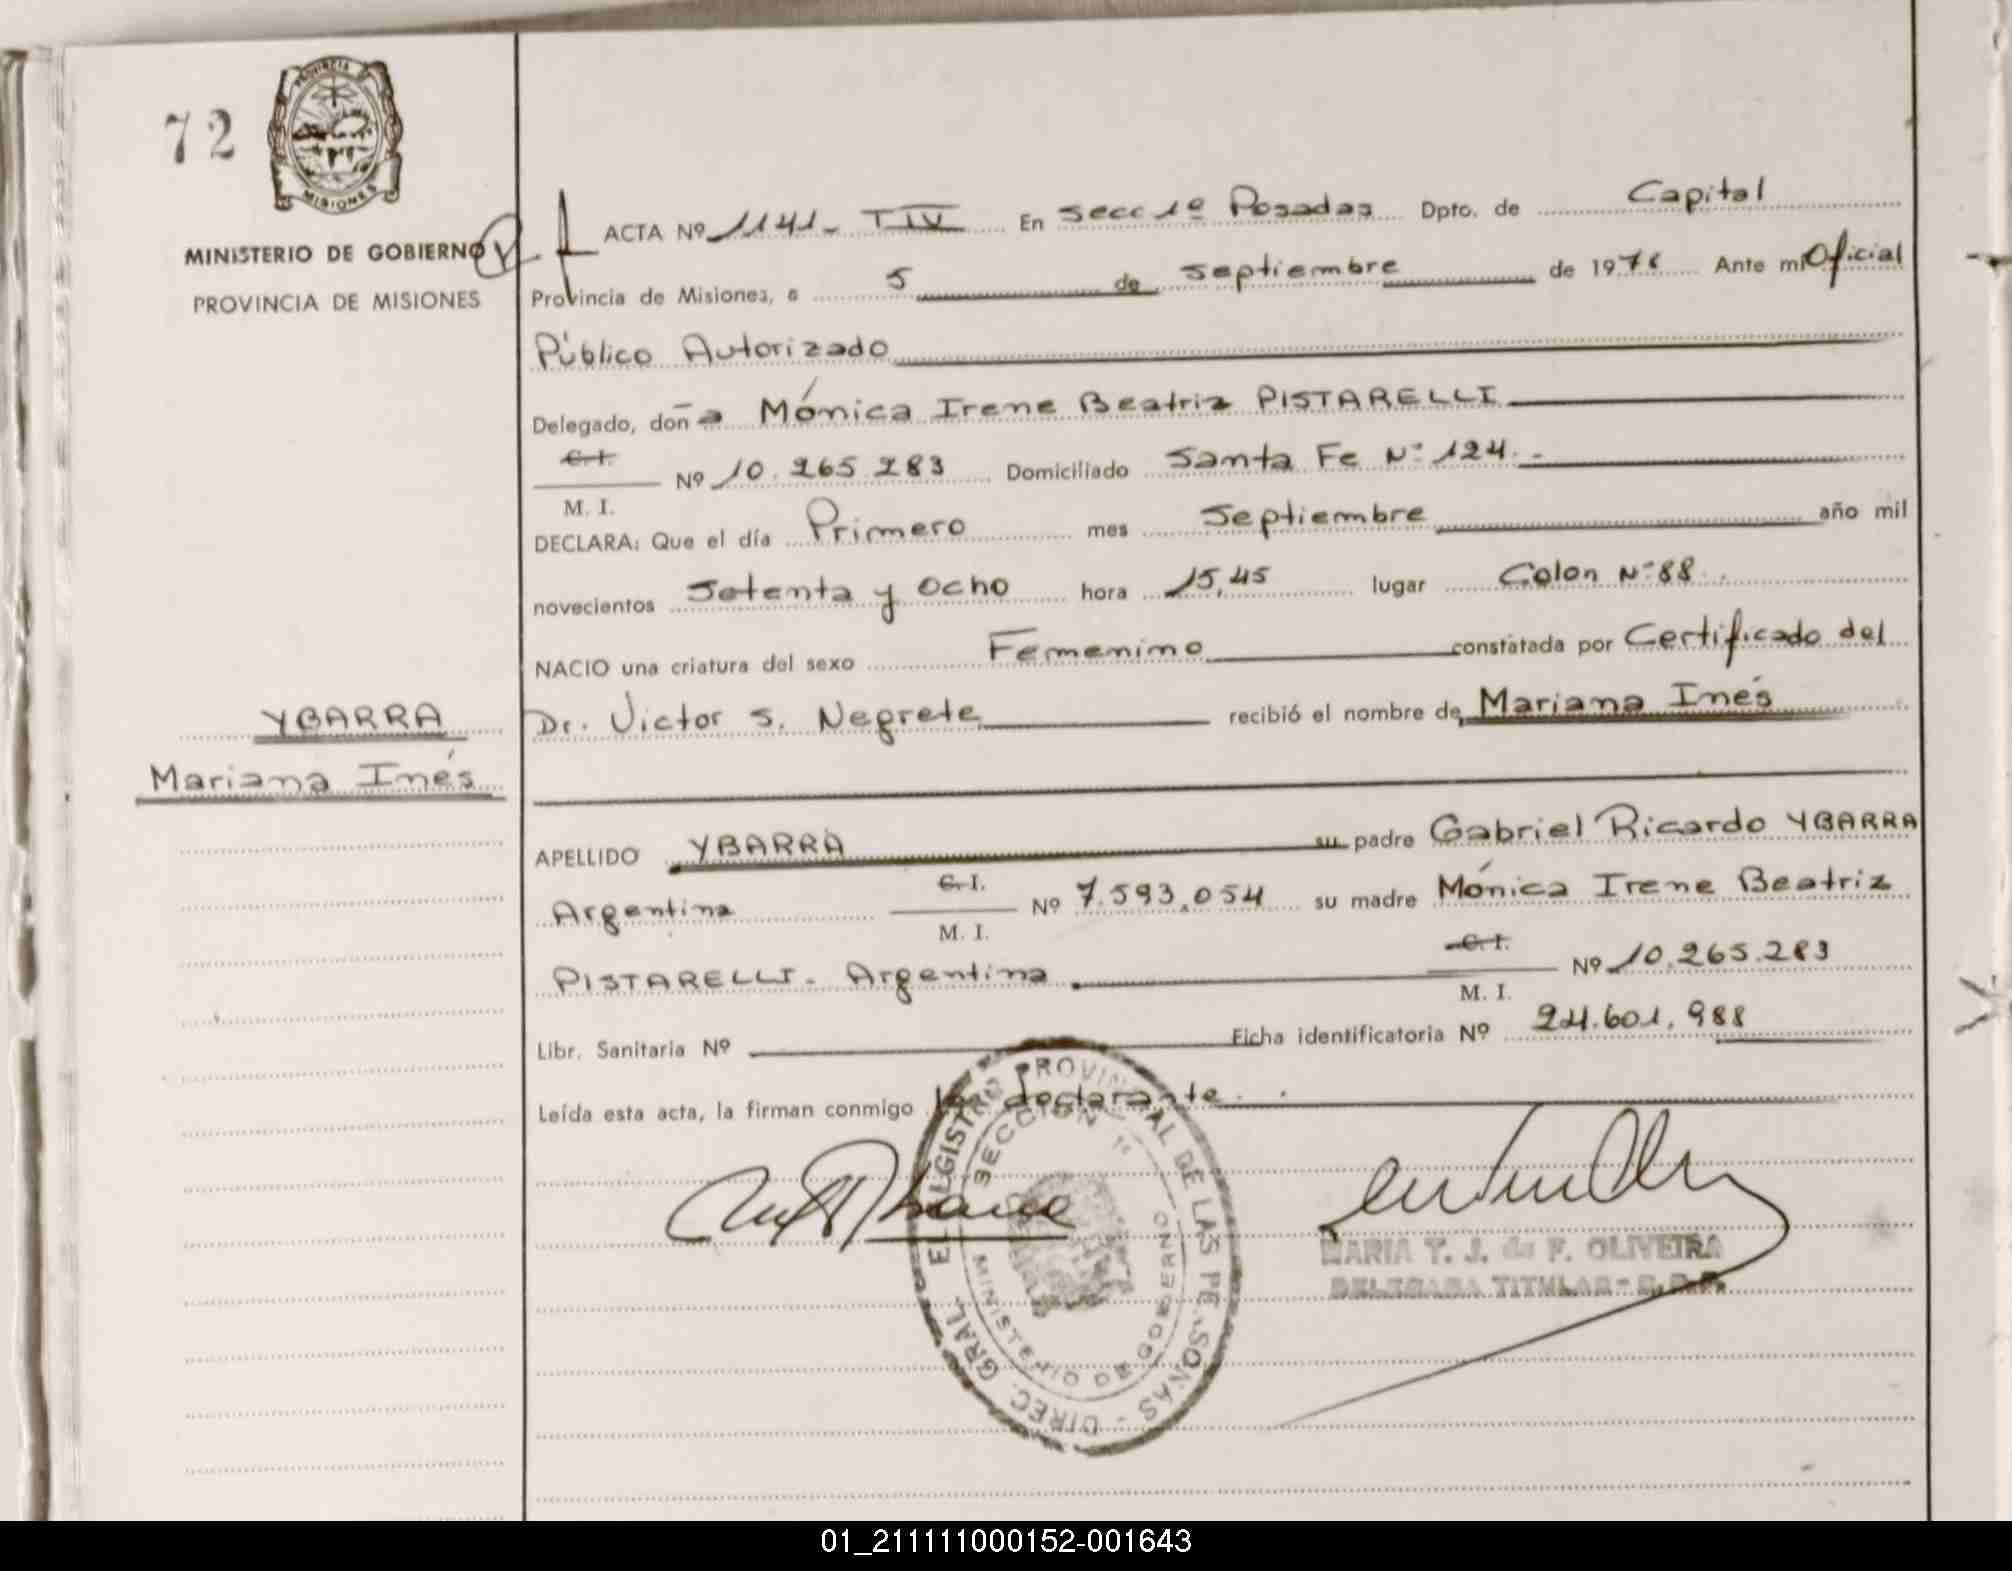 72
PROVINCIA
MISIONES
MINISTERIO DE GOBIERNO
PROVINCIA DE MISIONES
ACTA Nº 1141- TIV En Secc 1º Posadas Dpto. de Capital
Provincia de Misiones, a 5 de Septiembre de 1978 Ante mi Oficial
Público Autorizado
Delegado, doña Mónica Irene Beatriz PISTARELLI
C. I.
Nº 10.265.283 Domiciliado Santa Fe Nº 124.-
M. I.
DECLARA: Que el día Primero mes Septiembre año mil
novecientos Setenta y ocho hora 15,45 lugar Colon Nº 88.
NACIO una criatura del sexo Femenino constatada por Certificado del
Dr. Victor S. Negrete recibió el nombre de Mariana Inés
YBARRA
Mariana Inés
APELLIDO YBARRA su padre Gabriel Ricardo YBARRA
Argentina C. I. Nº 7.593.054 su madre Mónica Irene Beatriz
M. I.
PISTARELLI. Argentina C. I. Nº 10.265.283
M. I.
Libr. Sanitaria Nº Ficha identificatoria Nº 24.601.988
Leída esta acta, la firman conmigo la declarante.
DIREC. GRAL. EL REGISTRO PROVINCIAL DE LAS PERSONAS
SECCION 1ª
MINISTERIO DE GOBIERNO
MARIA T. J. de F. OLIVEIRA
DELEGADA TITULAR
01_211111000152-001643